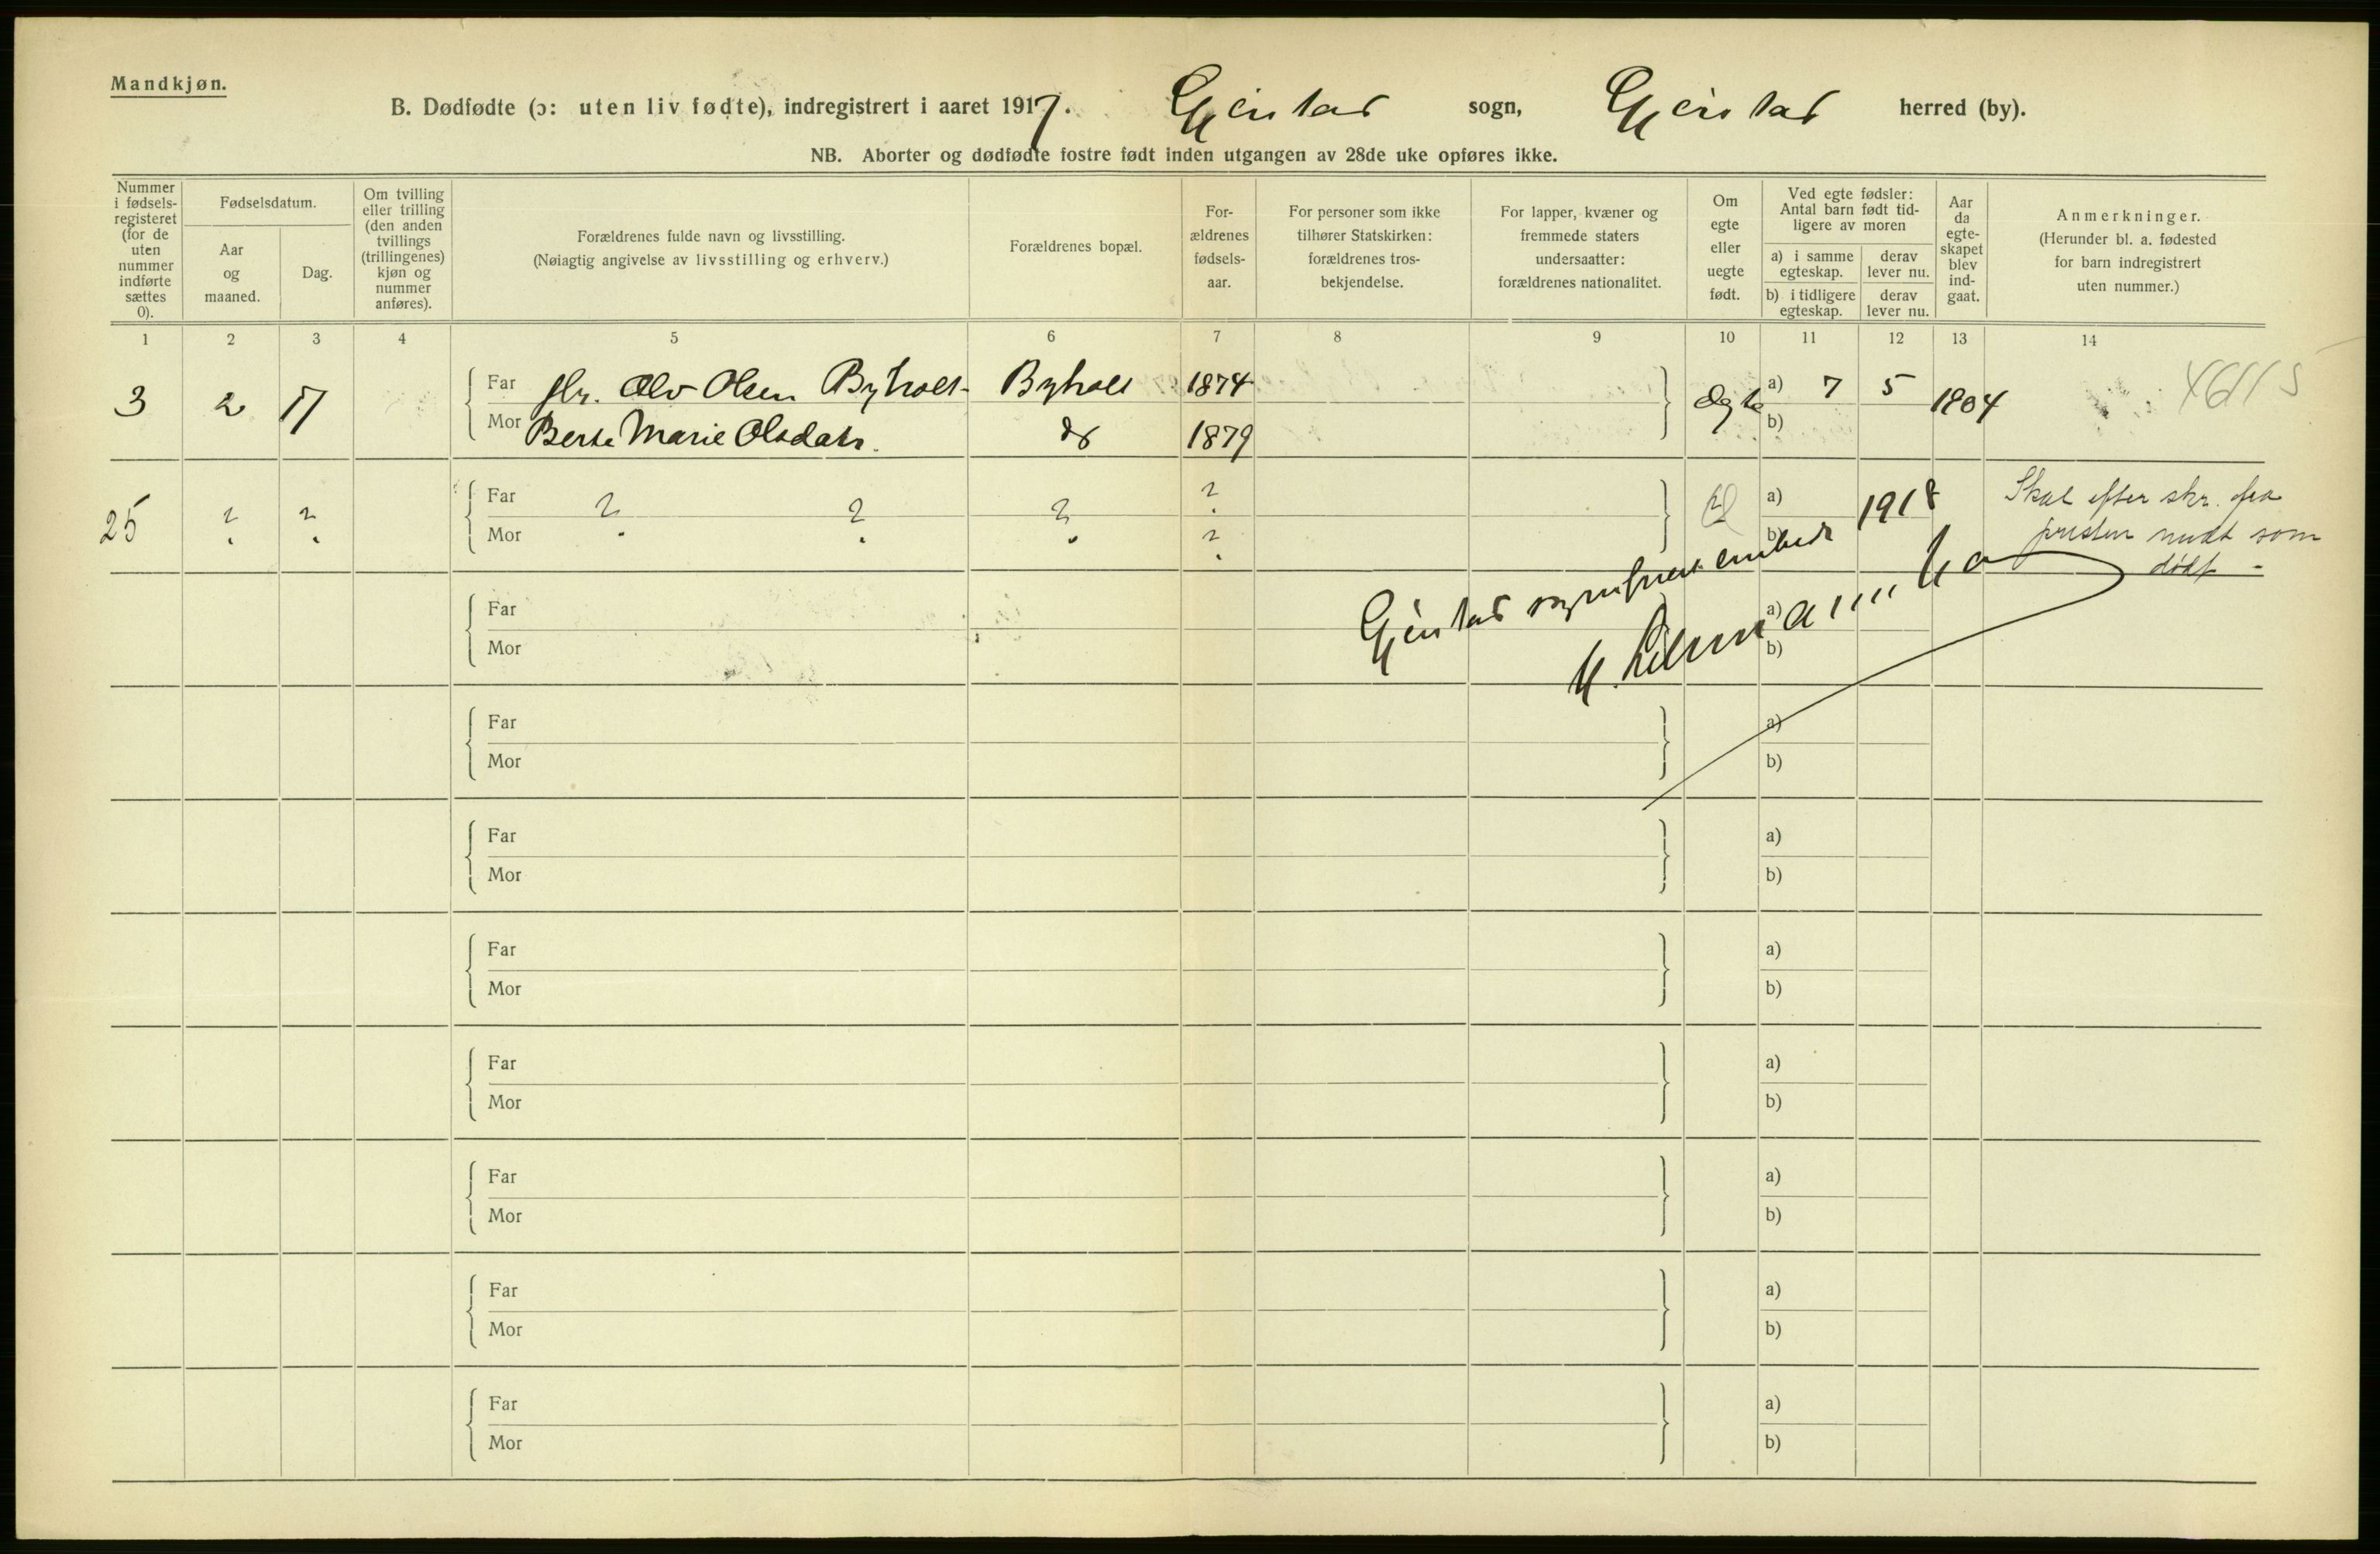 Mandkjøn.
B. Dødfødte (ɔ: uten liv fødte), indregistrert i aaret 1917. Gjerstad sogn, Gjerstad herred (by).
NB. Aborter og dødfødte fostre født inden utgangen av 28de uke opføres ikke.
Nummer i fødsels-registeret (for de uten nummer indførte sættes 0).
Fødselsdatum.
Aar og maaned.
Dag.
Om tvilling eller trilling (den anden tvillings (trillingenes) kjøn og nummer anføres).
Forældrenes fulde navn og livsstilling.
(Nøiagtig angivelse av livsstilling og erhverv.)
Forældrenes bopæl.
For-ældrenes fødsels-aar.
For personer som ikke tilhører Statskirken: forældrenes tros-bekjendelse.
For lapper, kvæner og fremmede staters undersaatter: forældrenes nationalitet.
Om egte eller uegte født.
Ved egte fødsler: Antal barn født tid-ligere av moren
a) i samme egteskap.
derav lever nu.
b) i tidligere egteskap.
derav lever nu.
Aar da egte-skapet blev ind-gaat.
Anmerkninger.
(Herunder bl. a. fødested for barn indregistrert uten nummer.)
1 2 3 4 5 6 7 8 9 10 11 12 13 14
3 2 17 Far Olav Olsen Byholt Byholt 1874 Egte a) 7 5 1904
Mor Berte Marie Olsdatr. do 1879 b)
25 ? ? Far ? ? ? ? a) 1918 Skal efter skr. fra
Mor ? b) presten være som
dødf -
Gjerstad sogneprestembede
Far a)
Mor b)
Far a)
Mor b)
Far a)
Mor b)
Far a)
Mor b)
Far a)
Mor b)
Far a)
Mor b)
Far a)
Mor b)
Far a)
Mor b)